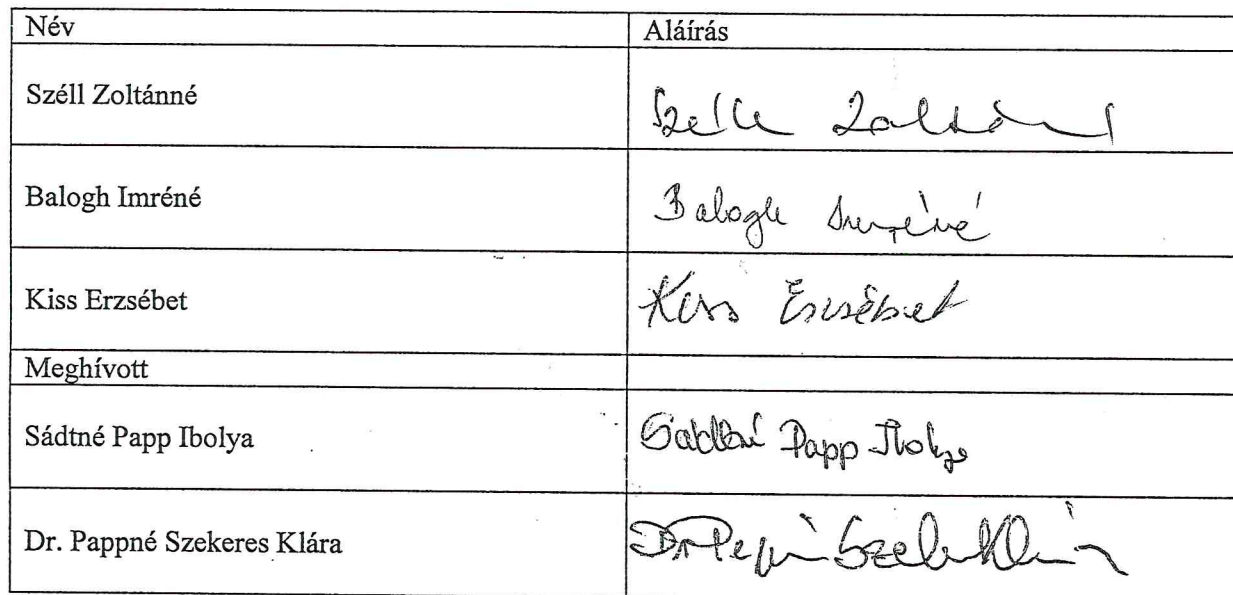 Név Aláírás
Széll Zoltánné Széll Zoltánné
Balogh Imréné Balogh Imréné
Kiss Erzsébet Kiss Erzsébet
Meghívott
Sádtné Papp Ibolya Papp Ibolya
Dr. Pappné Szekeres Klára Dr Pappné Klára